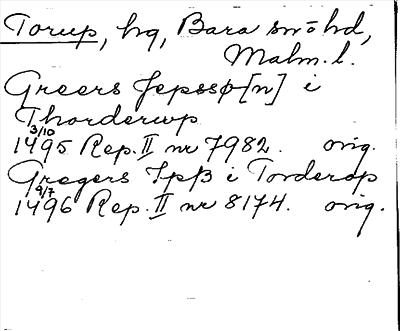 Torup, hg, Bara sn o hd,
Malm. l.
Greers Jepssø[n] i
Thorderwp
3/10
1495 Rep. II nr 7982. orig.
Gregers Jpß i Torderop
9/7
1496 Rep. II nr 8174. orig.